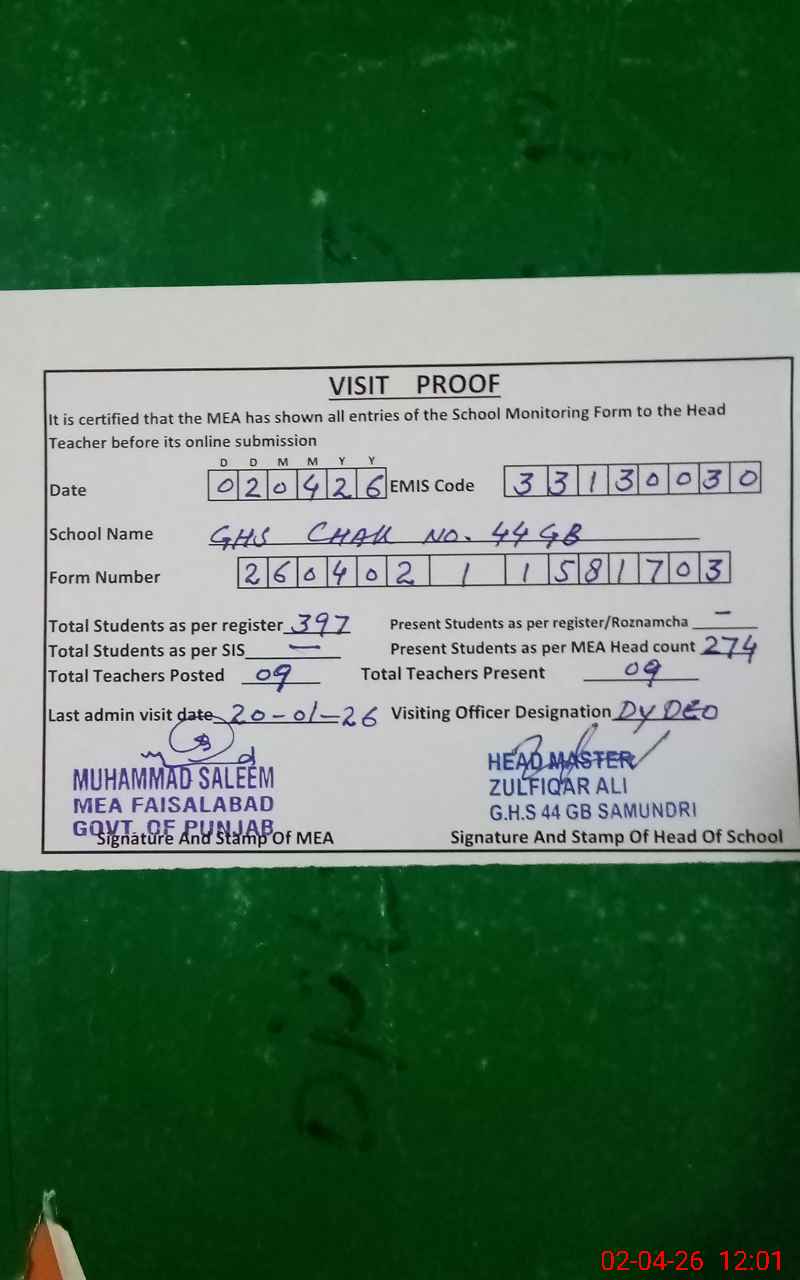 VISIT PROOF
It is certified that the MEA has shown all entries of the School Monitoring Form to the Head
Teacher before its online submission
D D M M Y Y
Date 020426 EMIS Code 33130030
School Name GHS CHAK NO. 44 GB
Form Number 26040211581703
Total Students as per register 397 Present Students as per register/Roznamcha –
Total Students as per SIS – Present Students as per MEA Head count 274
Total Teachers Posted 09 Total Teachers Present 09
Last admin visit date 20-01-26 Visiting Officer Designation Dy DEO
MUHAMMAD SALEEM
MEA FAISALABAD
GOVT. OF PUNJAB
Signature And Stamp Of MEA
HEAD MASTER
ZULFIQAR ALI
G.H.S 44 GB SAMUNDRI
Signature And Stamp Of Head Of School
02-04-26 12:01